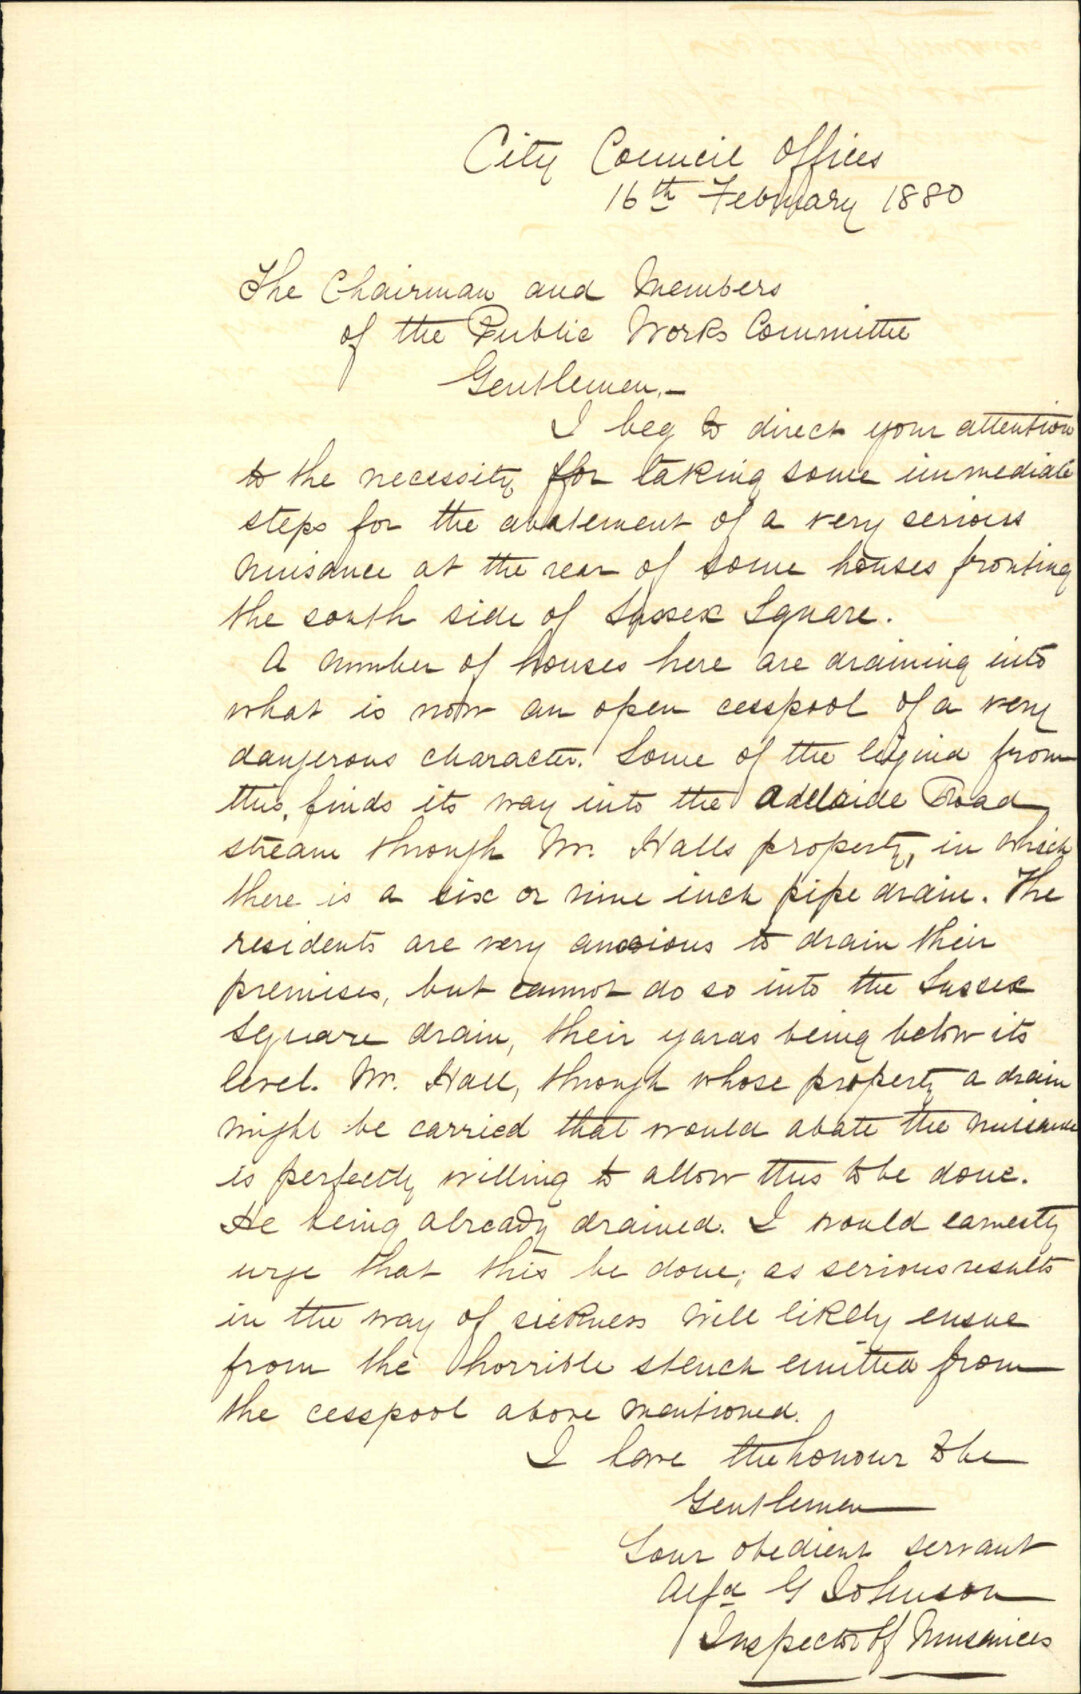 City Council Offices
16th February 1880
The Chairman and Members
of the Public Works Committee
Gentlemen,—
I beg to direct your attention
to the necessity for taking some immediate
steps for the abatement of a very serious
nuisance at the rear of some houses fronting
the south side of Sussex Square.
A number of houses here are draining into
what is now an open cesspool of a very
dangerous character. Some of the liquid from
this, finds its way into the Adelaide Road
stream through Mr. Halls property, in which
there is a six or nine inch pipe drain. The
residents are very anxious to drain their
premises, but cannot do so into the Sussex
Square drain, their yards being below its
level. Mr. Hall, through whose property a drain
might be carried that would abate the nuisance
is perfectly willing to allow this to be done.
He being already drained. I would earnestly
urge that this be done; as serious results
in the way of sickness will likely ensue
from the horrible stench emitted from
the cesspool above mentioned.
I have the honour to be
Gentlemen
Your obedient servant
Alfd G Johnson
Inspector of Nuisances